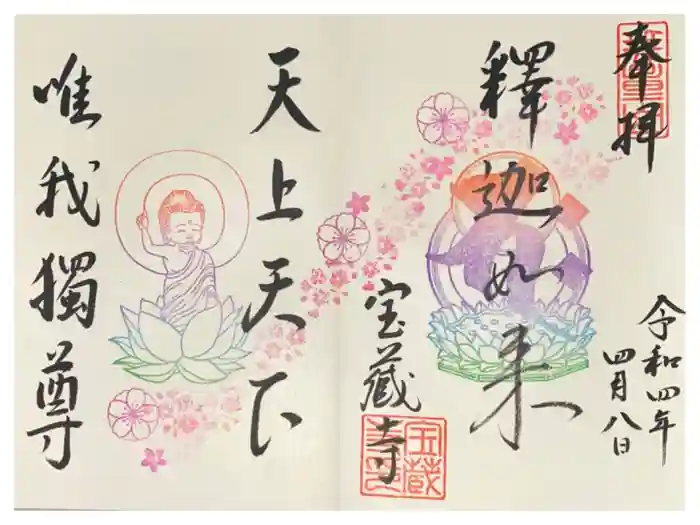 奉拝
令和四年
四月八日
釋迦如来
宝蔵寺
天上天下
唯我獨尊